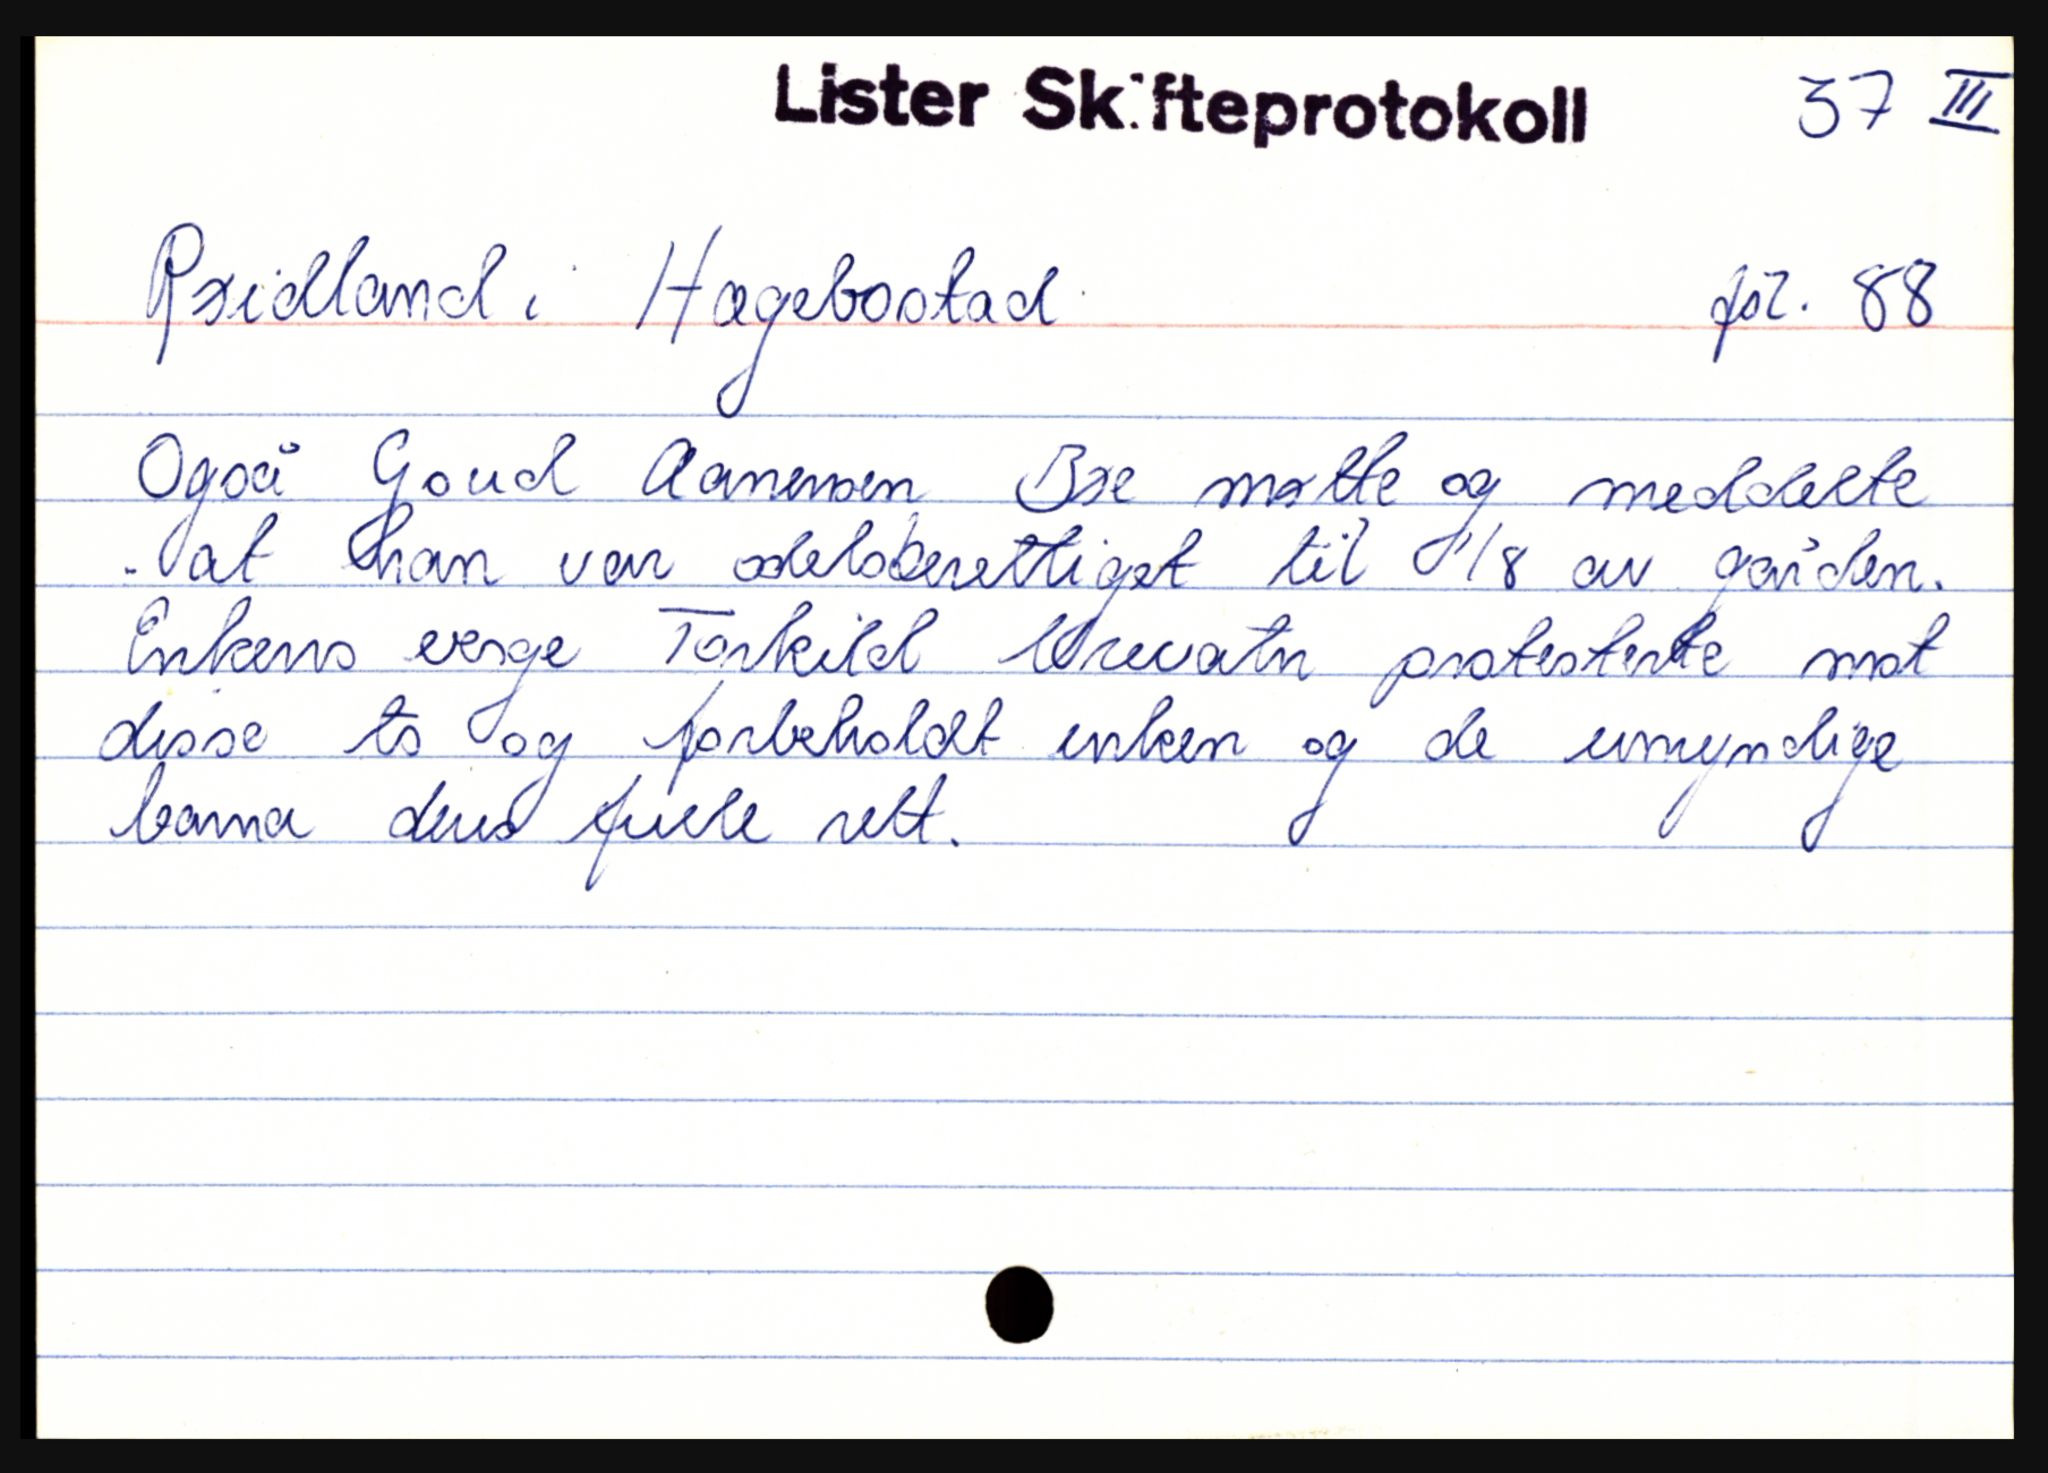 Lister Skifteprotokoll 37 III
Røidland i Hægebostad fol. 88
Også Goud Aanensen Bøe møtte og meddelte
at han var odelsberettiget til 1/8 av gården.
Enkens verge Torkild Urevatn protesterte mot
disse to og forbeholdt enken og de umyndige
barna deres fulle rett.